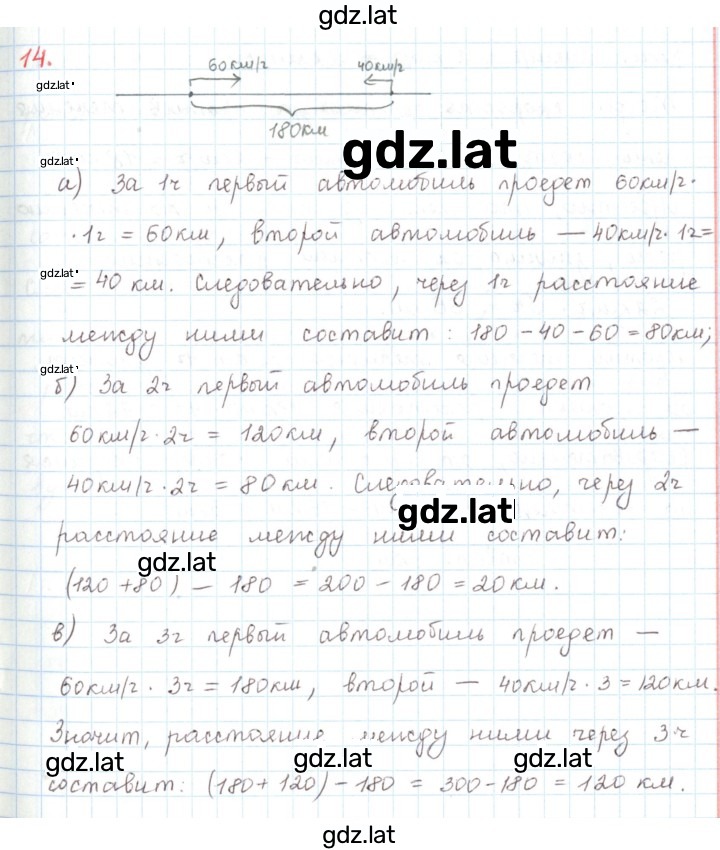 gdz.lat
14.
60км/г 40км/г
gdz.lat
180км
gdz.lat
gdz.lat
а) За 1г первый автомобиль проедет 60км/г·
·1г = 60км, второй автомобиль — 40км/г·1г=
gdz.lat
= 40 км. Следовательно, через 1г расстояние
между ними составит: 180 - 40 - 60 = 80км;
gdz.lat
б) За 2г первый автомобиль проедет
60км/г·2г = 120км, второй автомобиль —
40км/г·2г = 80км. Следовательно, через 2г
gdz.lat
расстояние между ними составит:
gdz.lat
(120 + 80) - 180 = 200 - 180 = 20км.
в) За 3г первый автомобиль проедет —
60км/г· 3г = 180км, второй — 40км/г·3 = 120км.
Значит, расстояние между ними через 3г
gdz.lat gdz.lat gdz.lat
составит: (180 + 120) - 180 = 300 - 180 = 120 км.
gdz.lat